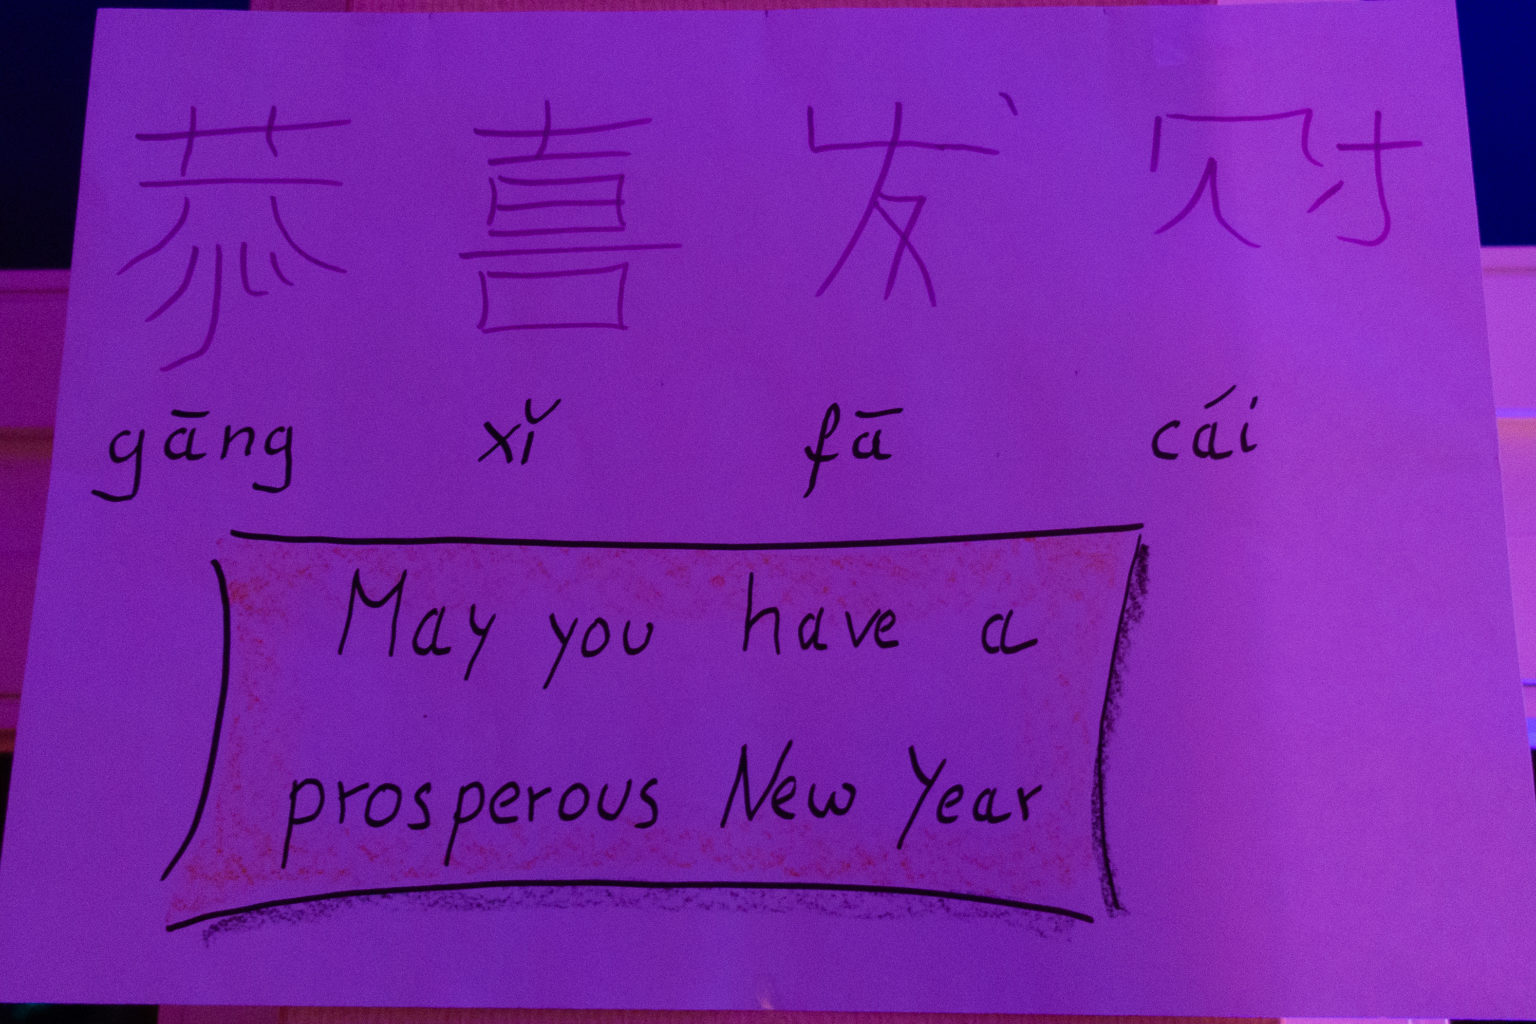 恭 喜 发 财
gāng xǐ fā cái
May you have a
prosperous New Year